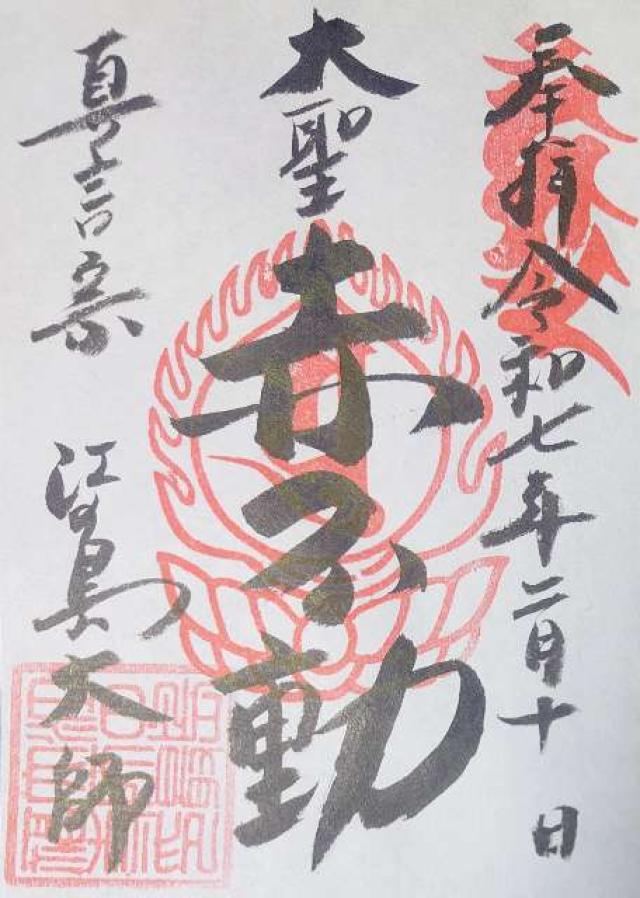 奉拝 令和七年二月十日
大聖
赤不動
真言宗
江の島大師